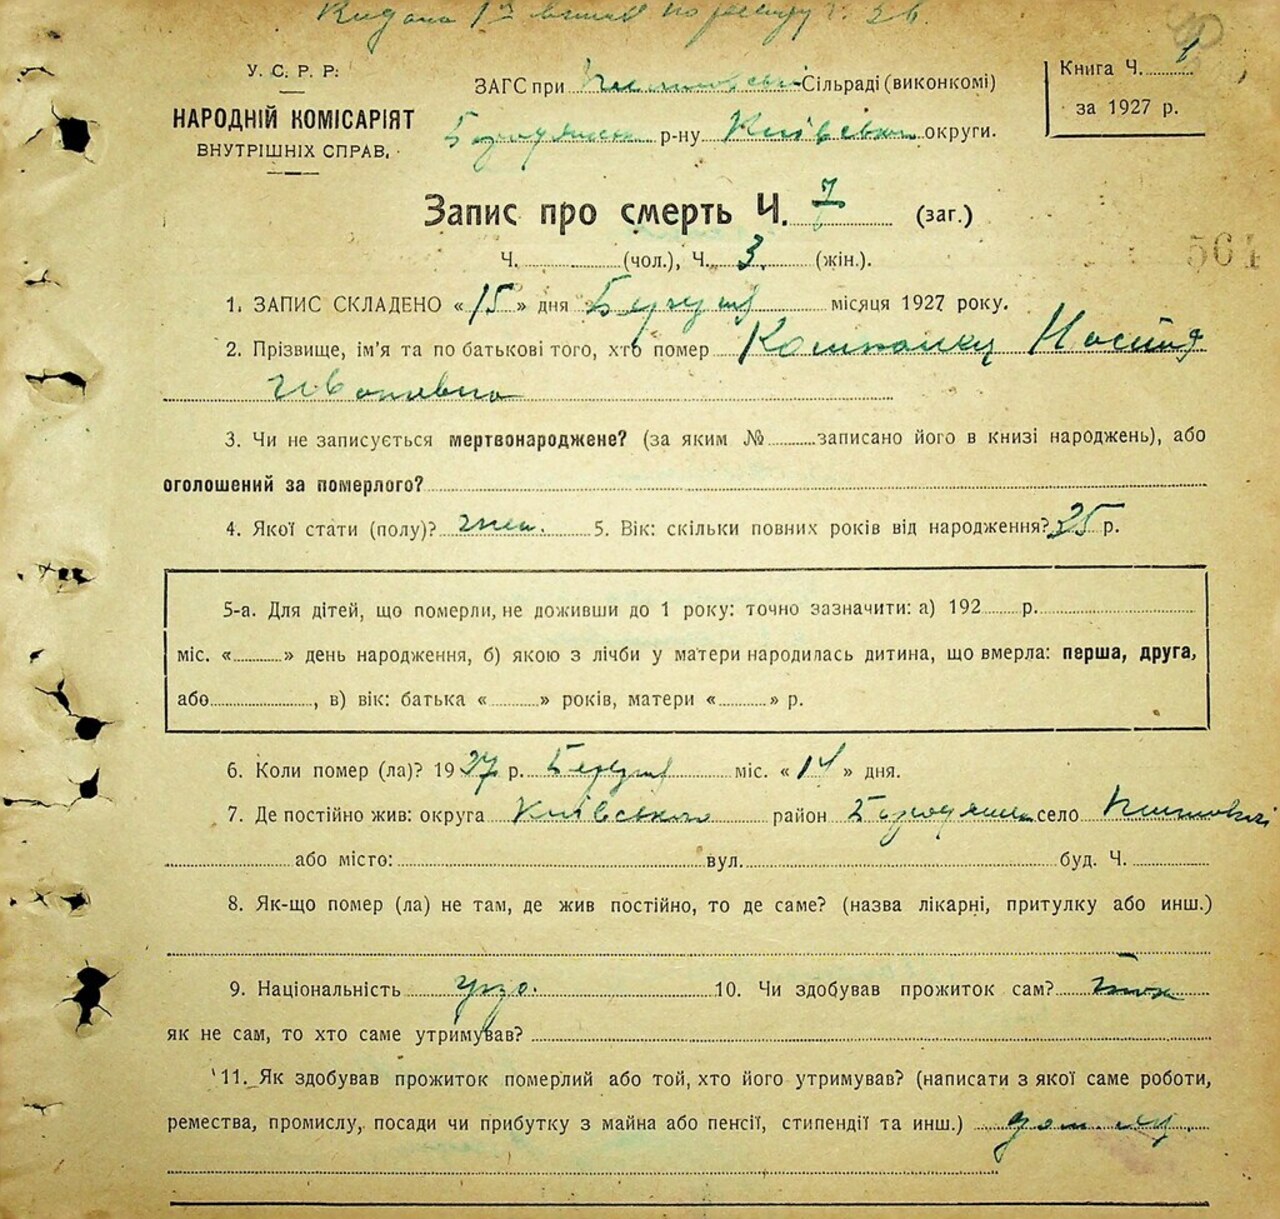 У. С. Р. Р.
НАРОДНІЙ КОМІСАРІЯТ
ВНУТРІШНІХ СПРАВ.
ЗАГС при Сільраді (виконкомі)
р-ну Київської округи.
Книга Ч. 1
за 1927 р.
Запис про смерть Ч. 7 (заг.)
564
Ч. (чол.), Ч. 3. (жін.).
1. ЗАПИС СКЛАДЕНО « 15 » дня Березня місяця 1927 року.
2. Прізвище, ім'я та по батькові того, хто помер Настя
Ивановна
3. Чи не записується мертвонароджене? (за яким № записано його в книзі народжень), або
оголошений за померлого?
4. Якої стати (полу)? жін. 5. Вік: скільки повних років від народження? р.
5-а. Для дітей, що померли, не доживши до 1 року: точно зазначити: а) 192 р.
міс. « » день народження, б) якою з лічби у матери народилась дитина, що вмерла: перша, друга,
або , в) вік: батька « » років, матери « » р.
6. Коли помер (ла)? 1927 р. Березня міс. « 14 » дня.
7. Де постійно жив: округа Київська район село
або місто: вул. буд. Ч.
8. Як-що помер (ла) не там, де жив постійно, то де саме? (назва лікарні, притулку або инш.)
9. Національність укр. 10. Чи здобував прожиток сам?
як не сам, то хто саме утримував?
11. Як здобував прожиток померлий або той, хто його утримував? (написати з якої саме роботи,
ремества, промислу, посади чи прибутку з майна або пенсії, стипендії та инш.)